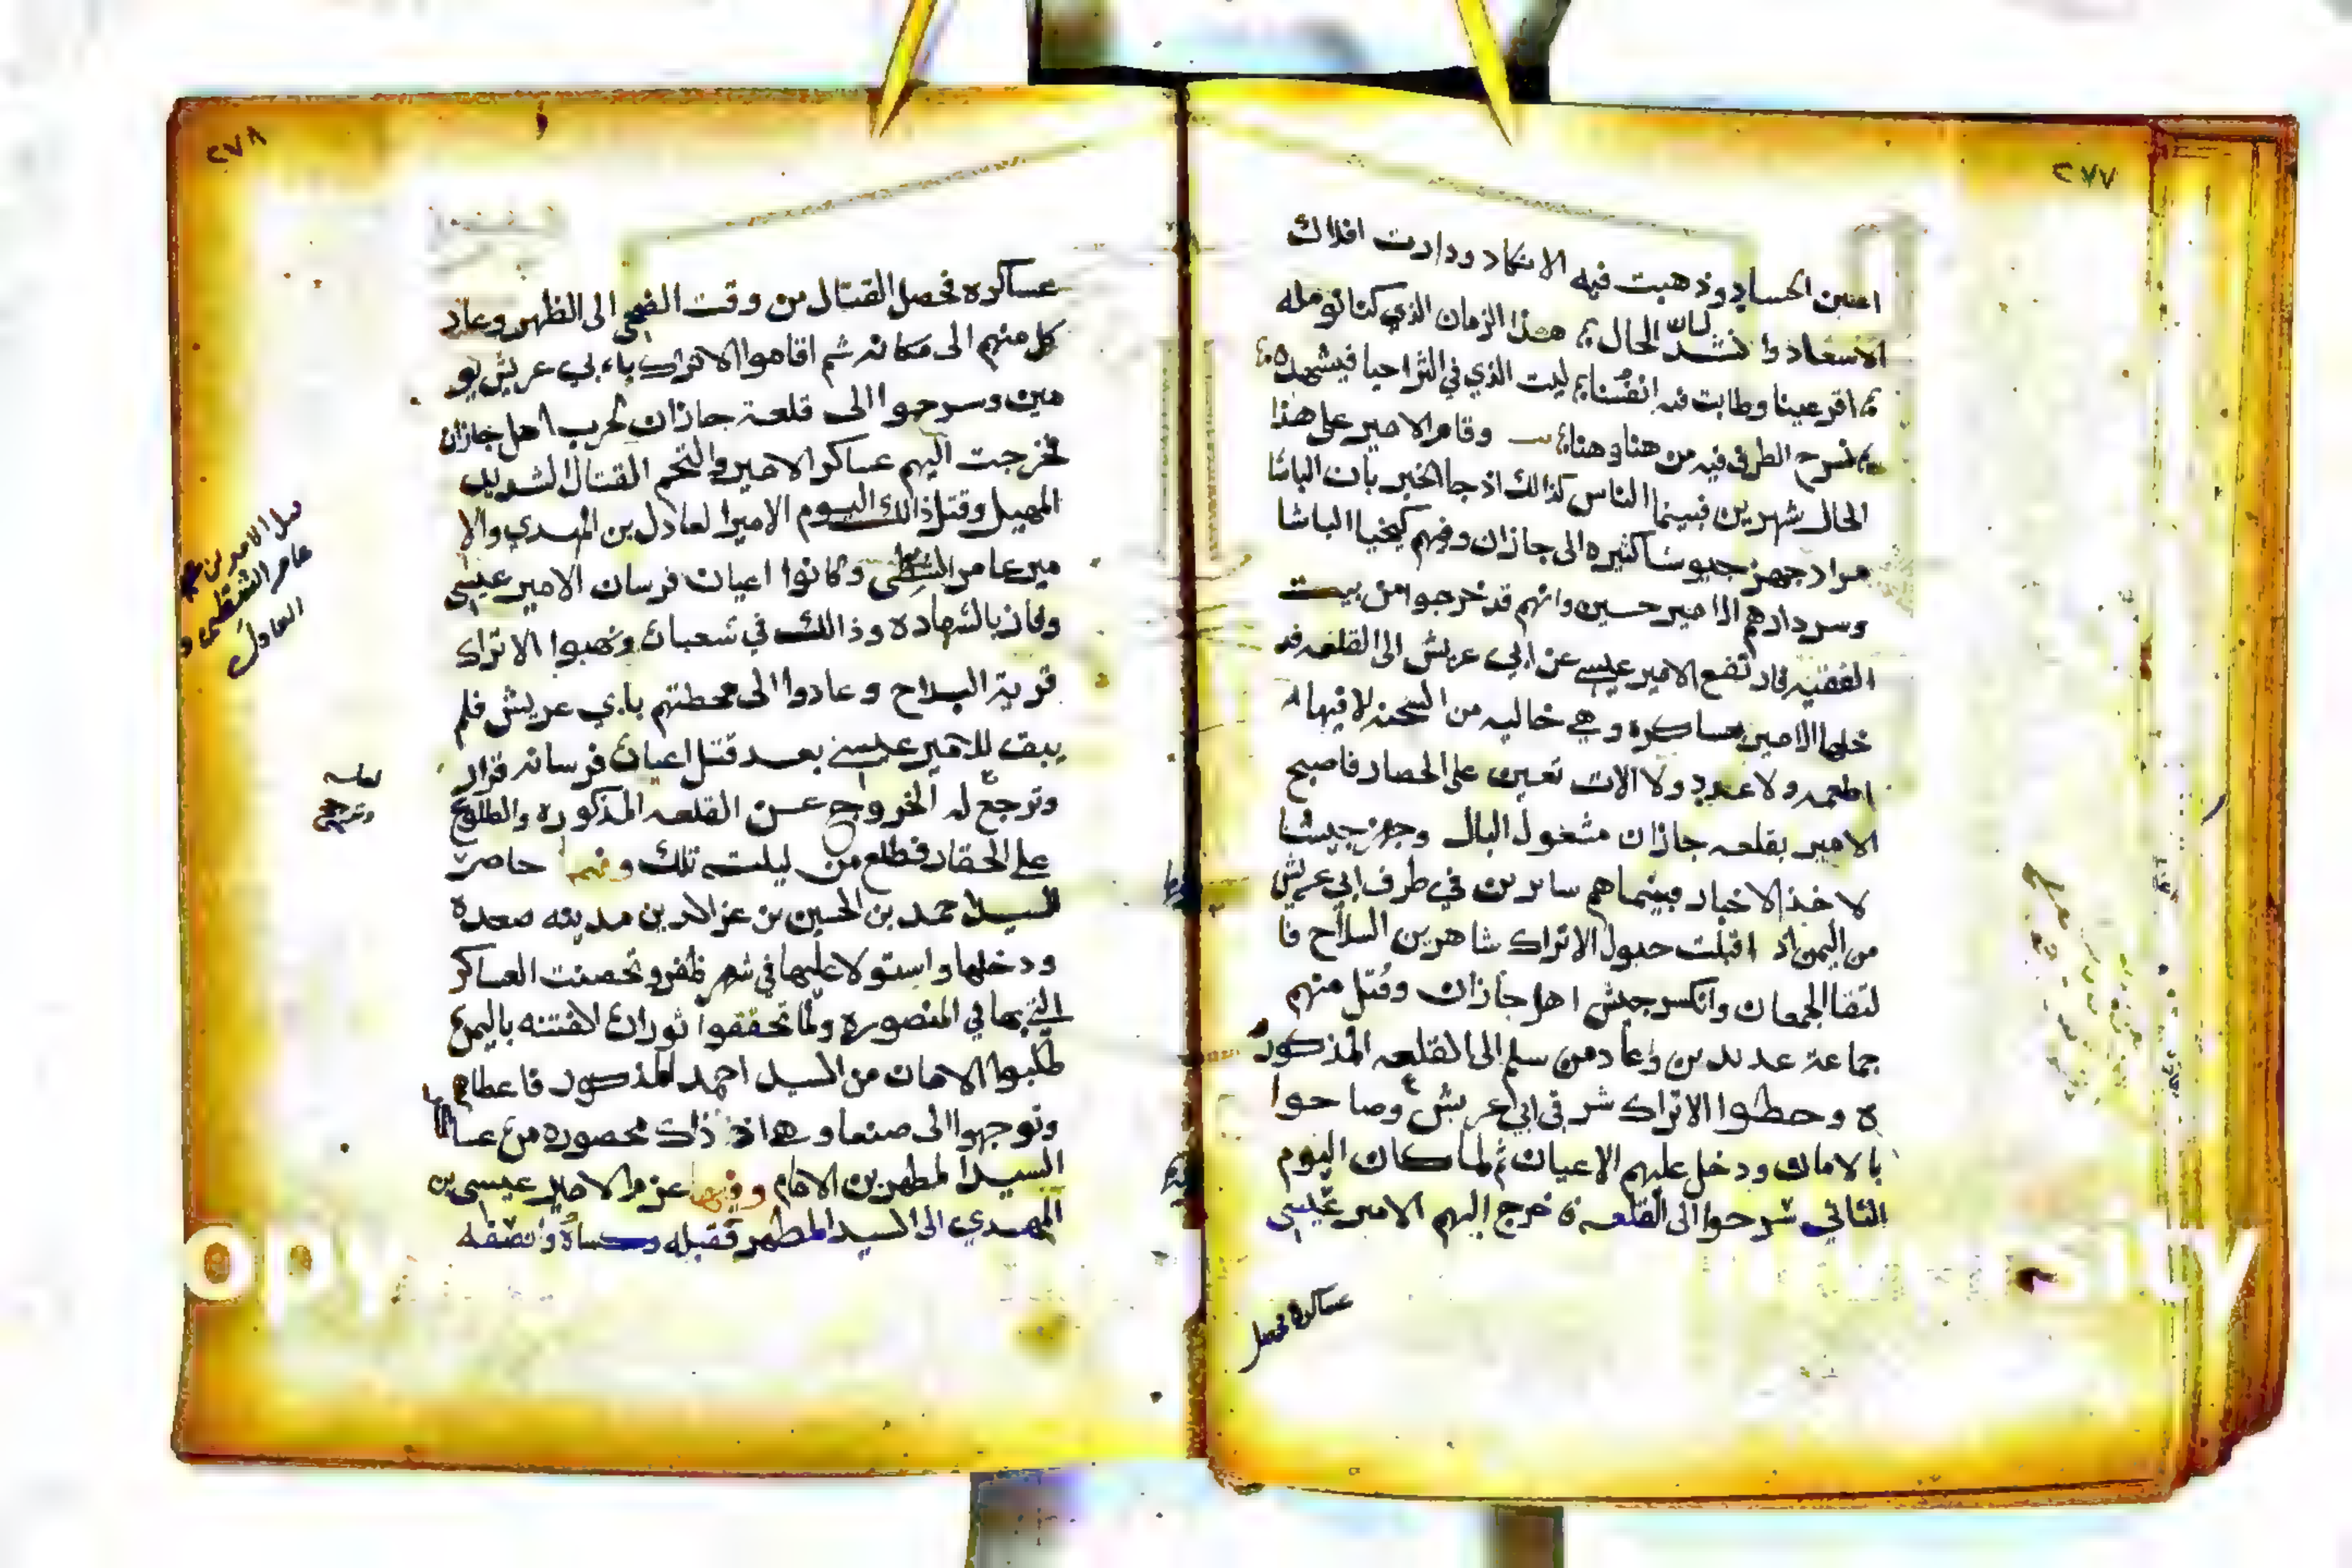 ٢٧٧
اعين الحساد وذهبت فيه الانكاد ودارت افلاك
الاسعاد وانشد لسان الحال هذا الزمان الذي كنا نومله
اقر عينا وطابت فيه انفسنا ليت الذي في الثرا حيا فيشهده
نسرح الطرف فيه من هنا وهنا وقام الامير على هذا
الحال شهرين فبينما الناس كذالك اذ جا الخبر بان الباشا
مراد جهز جيوشا كثيره الى جازان وفيهم كيخيا الباشا
وسردارهم الامير حسين وانهم قد خرجوا من بيت
الفقيه فارتفع الامير عيسى عن ابي عريش الى القلعه قد
خلها الامير بعساكره وهي خاليه من الشحنه لا فيها
اطعمه ولا عدد ولا الات تعين على الحصار فاصبح
الامير بقلعه جازان مشغول البال وجهز جيشا
لاخذ الاخبار فبينما هم سايرين في طرف ابي عريش
من اليمن اذ اقبلت خيول الاتراك شاهرين السلاح فا
لتقا الجمعان وانكسر جيش اهل جازان وقتل منهم
جماعة عديدين وعاد من سلم الى القلعه المذكور
ه وحطوا الاتراك شرقي ابي عريش وصاحوا
بالامان ودخل عليهم الاعيان ثم لما كان اليوم
الثاني سرحوا الى القلعه خرج اليهم الامير عيسى
عساكره فحصل
٢٧٨
عساكره فحصل القتال من وقت الضحى الى الظهر وعاد
كل منهم الى مكانه ثم اقاموا الاتراك بابي عريش يو
مين وسرحوا الى قلعة جازان لحرب اهل جازان
فخرجت اليهم عساكر الامير والتحم القتال الشديد
المهيل وقتل ذالك اليوم الامير العادل بن المهدي والا
مير عامر القطبي وكانوا اعيان فرسان الامير عيسى
وفاز بالشهاده وذالك في شعبان ونهبوا الاتراك
قرية البداح وعادوا الى محطتهم بابي عريش فلم
يبق للامير عيسى بعد قتل اعيان فرسانه قرار
وترجح له الخروج عن القلعه المذكوره والطلوع
على الحقار فطلع من ليلته تلك وفيها حاصر
السيد احمد بن الحسين بن عز الدين مدينه صعدة
ودخلها واستولا عليها في شهر ظفر وتحصنت العساكر
التي بها في المنصوره ولما تحققوا ثوران الفتنه باليمن
طلبوا الامان من السيد احمد المذكور فاعطاهم
وتوجهوا الى صنعا وهي اذ ذاك محصوره من عسا
السيد المطهر بن الامام وفيها عزم الامير عيسى بن
المهدي الى السيد المطهر فقبله وكساه وانصفه
عامر القطبي و
العادل